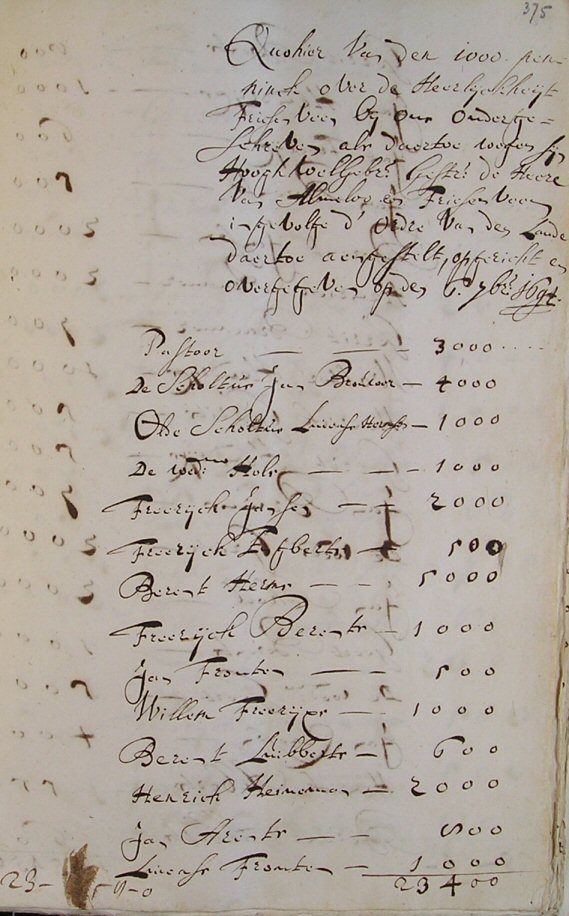 375
Quohier Van den 1000 pen-
ninck over de Heerlyckheyt
Friesenveen by ons Onderge-
schreven als daertoe
Hooghwelgebr: Gestr: de Heere
Van Almeloo en Friesenveen
ingevolge d' Ordre Van den Lande
daertoe aengestelt, opgericht en
overgegeven op den 6. 7br: 1694.
Pastoor — 3000
De Scholtus Jan — 4000
Olde Scholtus — 1000
De wed: Hols — 1000
Freerijck Jansen — 2000
Freerijck Egberts — 500
Berent Herms — 5000
Freerijck Berents — 1000
Jan Fronten — 500
Willem Freerijx — 1000
Berent Lubberts — 600
Henrick Heineman — 2000
Jan Arents — 800
Fronten — 1000
23400
23-